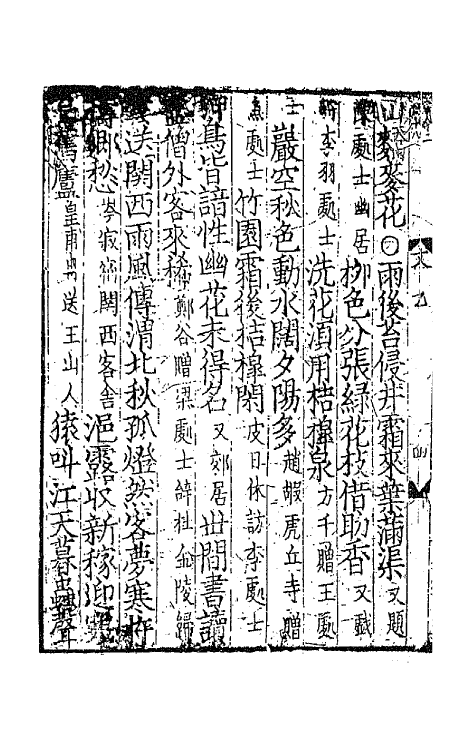 麥麥花○雨後苔侵井霜來葉滿渠又題
處士幽居柳色分張綠花枝借助香又戲
李羽處士洗花湏用桔槔泉方干贈王處
士巖空秋色動水闊夕陽多趙嘏虎丘寺贈
魚處士竹園霜後桔槔閑皮日休訪李處士
鳥皆諳性幽花未得名又郊居世間書讀
盡僧外客來稀鄭谷贈梁處士金陵歸
送關西雨風傳渭北秋孤燈然客夢寒杵
搗鄉愁岑宿關西客舍浥露收新稼迎
舊廬皇甫冉送王山人猿叫江天暮蟲聲